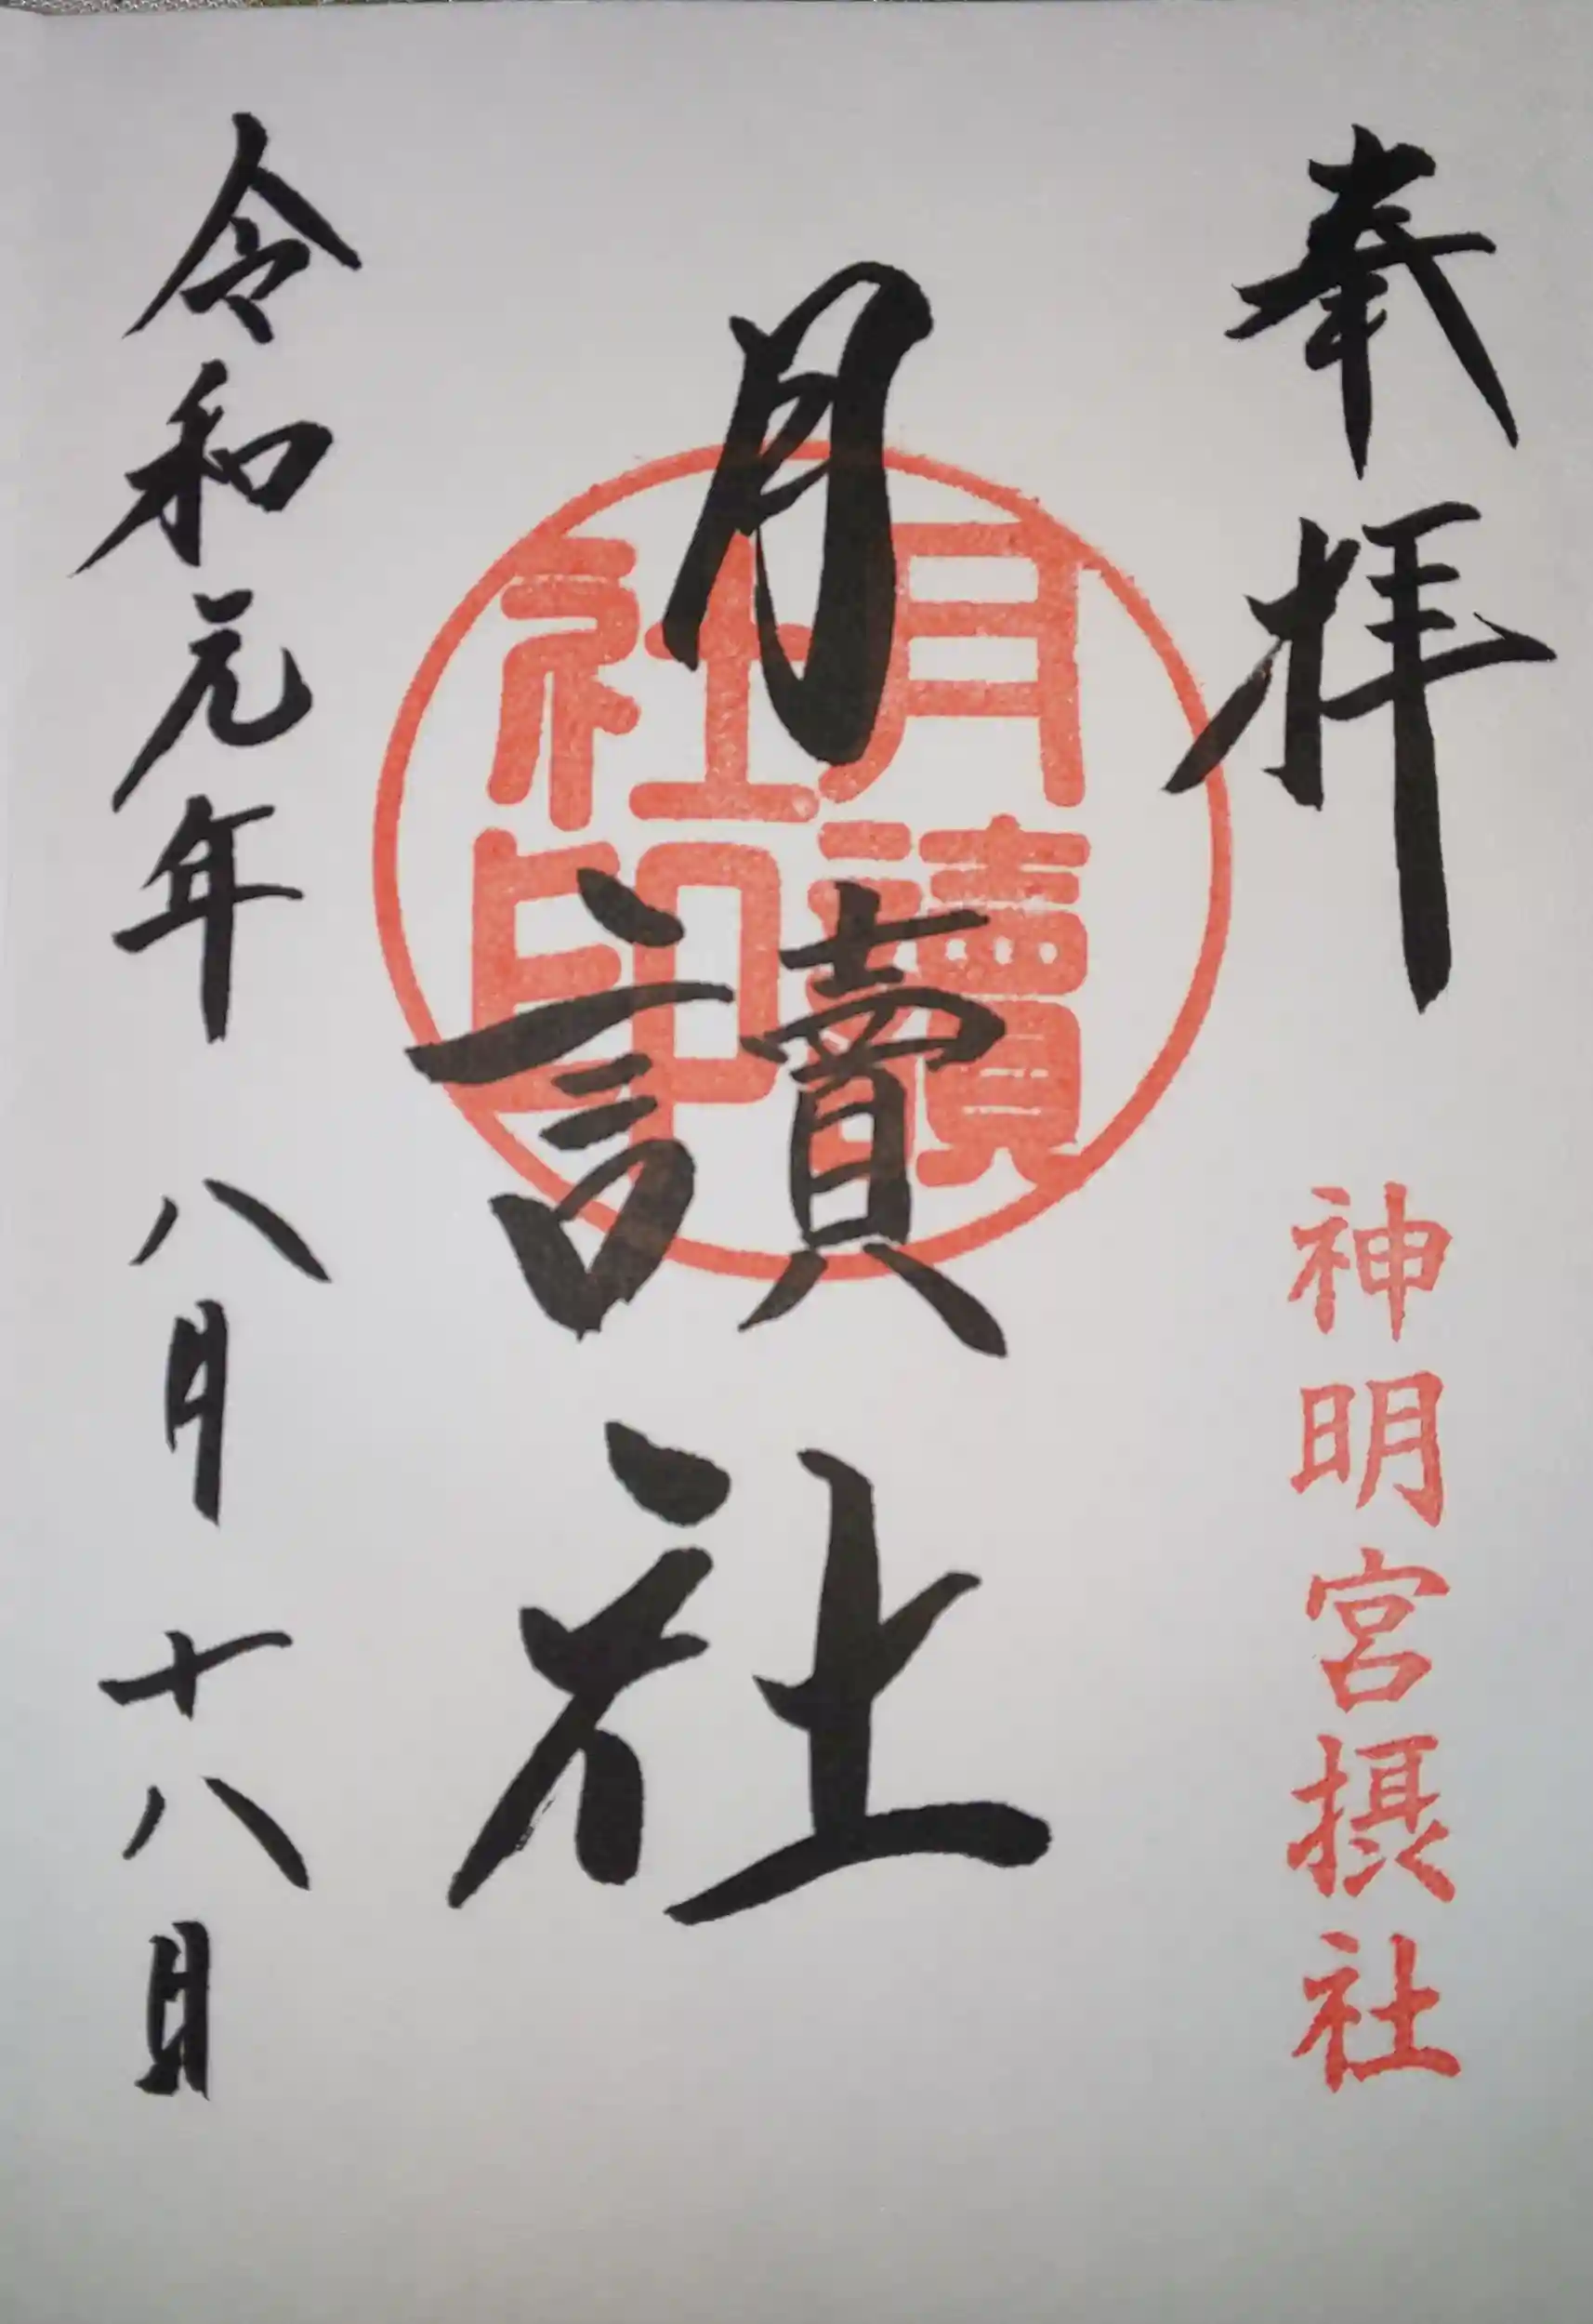 奉拝
神明宮摂社
月讀社
月讀社印
令和元年 八月 十八日